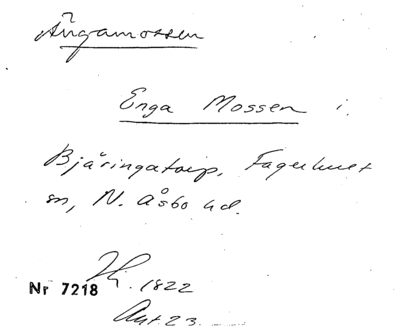 Ängamossen
Enga Mossen i.
Bjäringatorp, Fagerhult
sn, N. Åsbo hd.
Hj. 1822
Nr 7218
Akt 23.